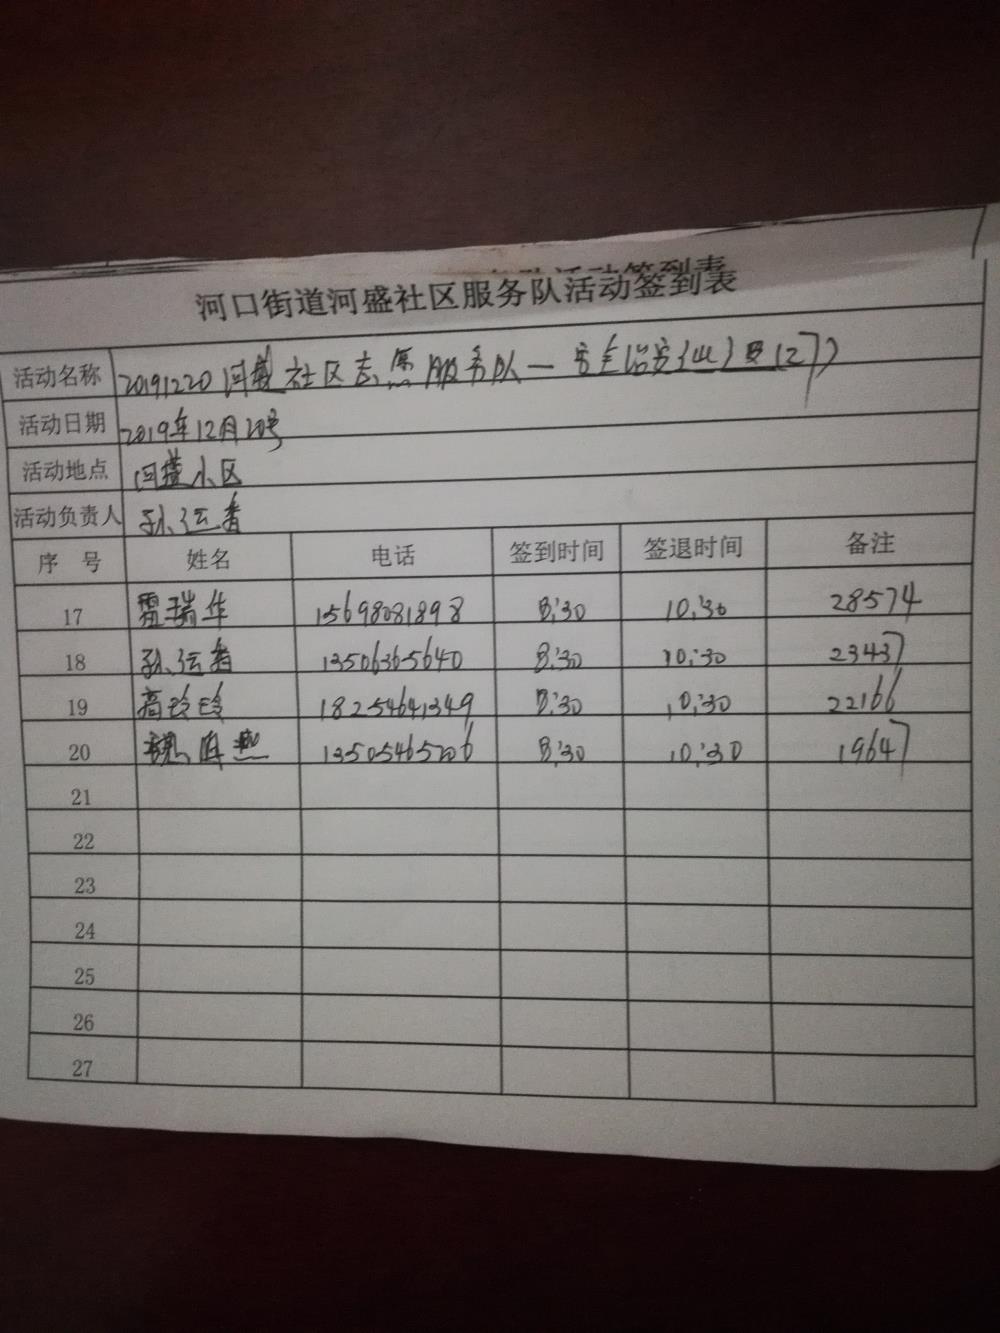 河口街道河盛社区服务队活动签到表
活动名称 20191220河盛社区志愿服务队一安全治安
活动日期 2019年12月20号
活动地点 河盛小区
活动负责人 孙运香
序 号 姓名 电话 签到时间 签退时间 备注
17 霍瑞华 15698081898 8:30 10:30 28574
18 孙运香 13506365640 8:30 10:30 23437
19 高玲玲 18254641349 8:30 10:30 22166
20 魏 13505465206 8:30 10:30 19647
21
22
23
24
25
26
27